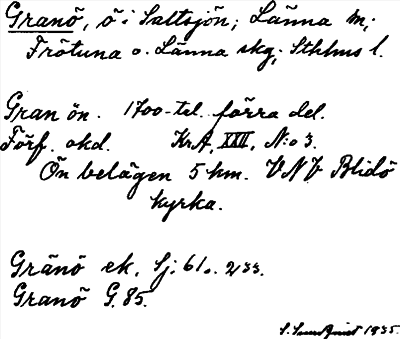 Granö, ö i Saltsjön; Länna sn;
Frötuna o. Länna skg; Sthlms l.
Gran ön. 1700-tel. förra del.
Förf. okd. KrA, XXII, N:o 3.
Ön belägen 5 km. VNV Blidö
kyrka.
Granö ek. Sj: 61. 233.
Granö G. 85.
S. Sundquist 1935.